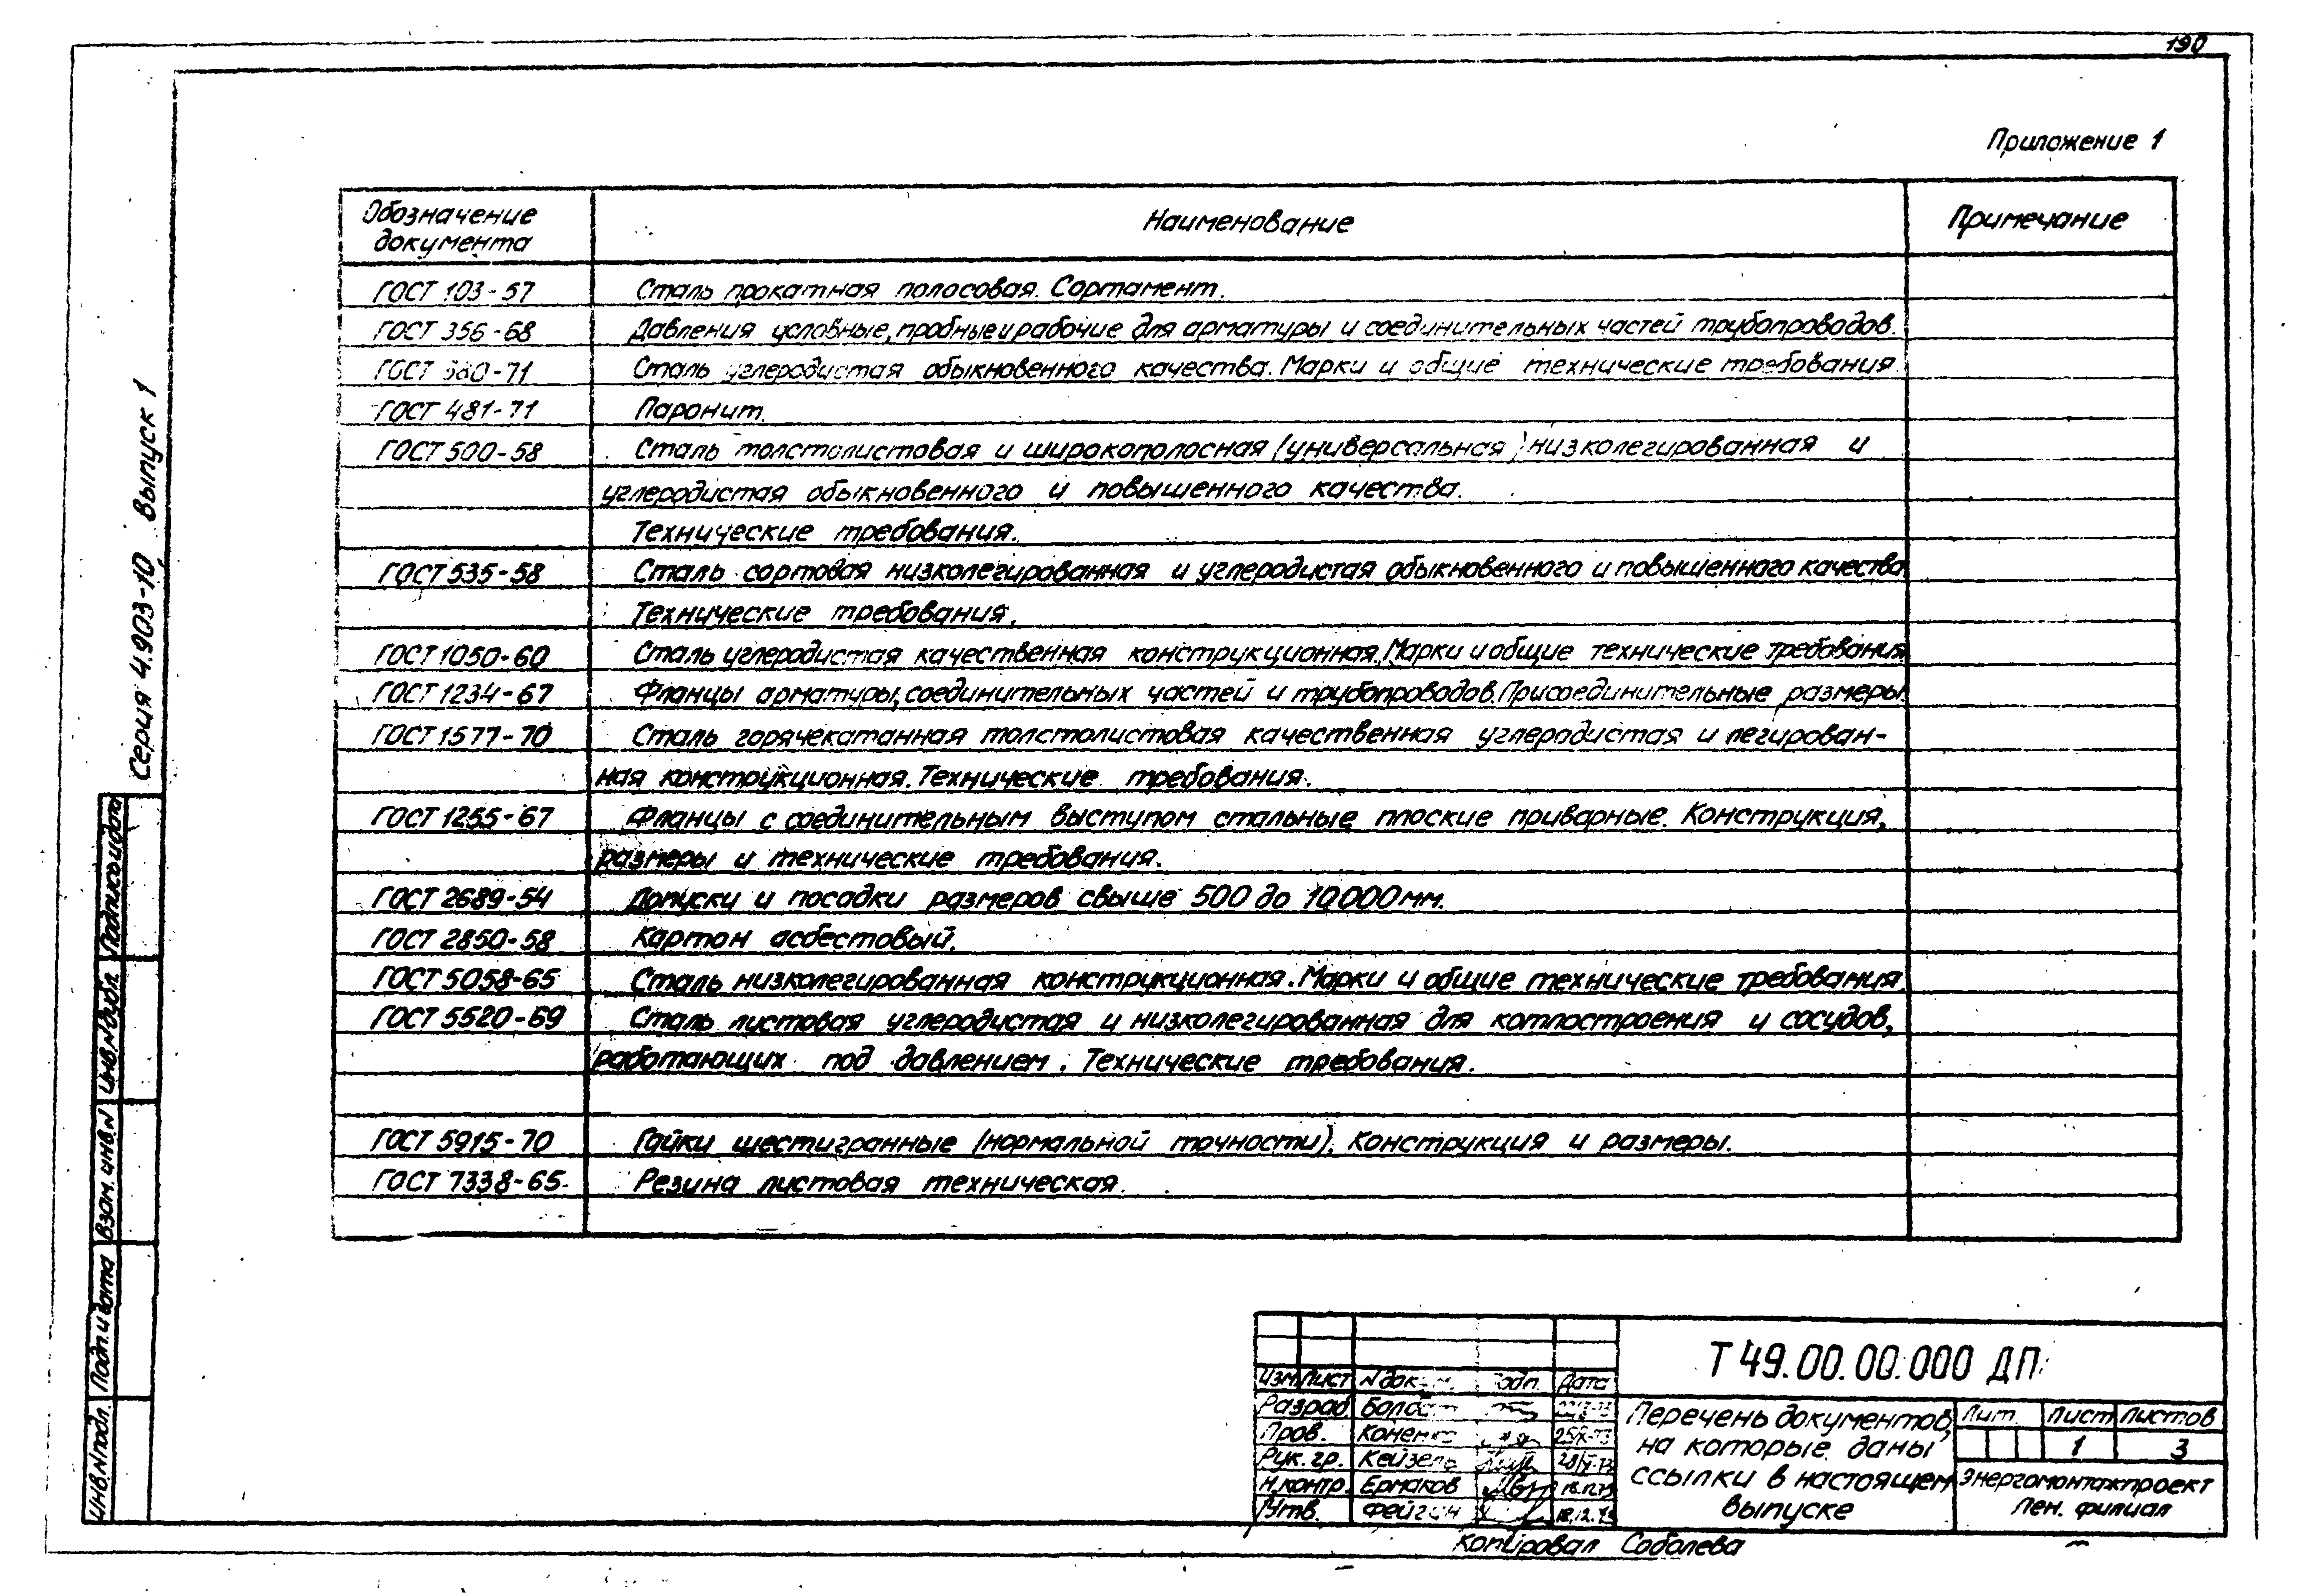 190
Приложение 1
Обозначение документа Наименование Примечание
ГОСТ 103-57 Сталь прокатная полосовая. Сортамент.
ГОСТ 356-68 Давления условные, пробные и рабочие для арматуры и соединительных частей трубопроводов.
ГОСТ 380-71 Сталь углеродистая обыкновенного качества. Марки и общие технические требования.
ГОСТ 481-71 Паронит.
ГОСТ 500-58 Сталь толстолистовая и широкополосная (универсальная) низколегированная и
углеродистая обыкновенного и повышенного качества.
Технические требования.
ГОСТ 535-58 Сталь сортовая низколегированная и углеродистая обыкновенного и повышенного качества
Технические требования.
ГОСТ 1050-60 Сталь углеродистая качественная конструкционная. Марки и общие технические требования
ГОСТ 1234-67 Фланцы арматуры, соединительных частей и трубопроводов. Присоединительные размеры.
ГОСТ 1577-70 Сталь горячекатанная толстолистовая качественная углеродистая и легирован-
ная конструкционная. Технические требования.
ГОСТ 1255-67 Фланцы с соединительным выступом стальные плоские приварные. Конструкция,
размеры и технические требования.
ГОСТ 2689-54 Допуски и посадки размеров свыше 500 до 10000 мм.
ГОСТ 2850-58 Картон асбестовый.
ГОСТ 5058-65 Сталь низколегированная конструкционная. Марки и общие технические требования.
ГОСТ 5520-69 Сталь листовая углеродистая и низколегированная для котлостроения и сосудов,
работающих под давлением. Технические требования.
ГОСТ 5915-70 Гайки шестигранные (нормальной точности). Конструкция и размеры.
ГОСТ 7338-65. Резина листовая техническая.
Серия 4.903-10 Выпуск 1
Подпись и дата
Инв. N дубл.
Взам. инв. N
Подп. и дата
Инв. N подл.
Т 49.00.00.000 ДП
Изм Лист N докум. Подп. Дата
Разраб.
Пров.
Рук. гр. Кейзель
Н. контр. Ермаков 18.12.73
Утв. Фейгин 18.12.73
Перечень документов,
на которые даны
ссылки в настоящем
выпуске
Лит. Лист Листов
1 3
Энергомонтажпроект
Лен. филиал
Копировал Соболева